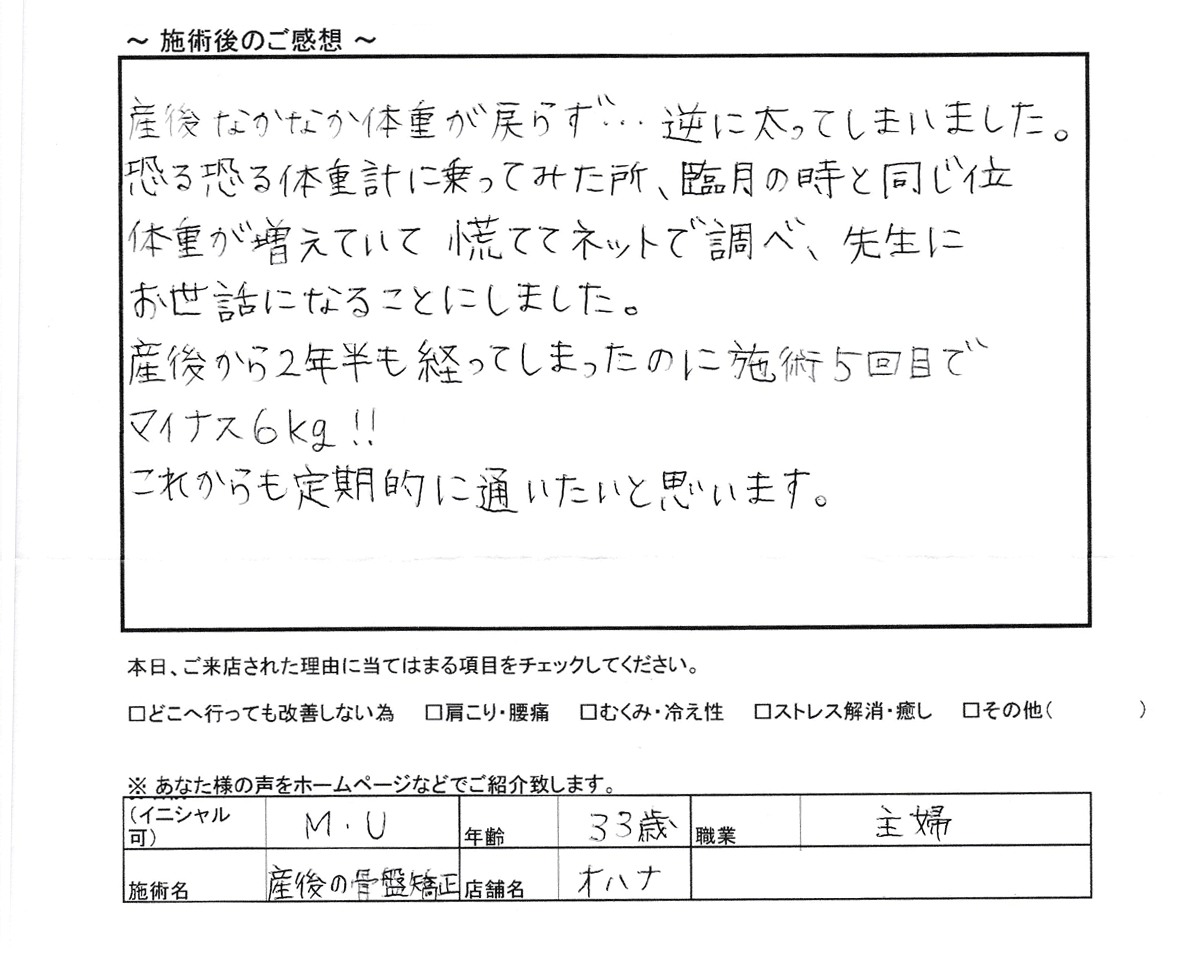 ～ 施術後のご感想 ～
産後なかなか体重が戻らず… 逆に太ってしまいました。
恐る恐る体重計に乗ってみた所、臨月の時と同じ位
体重が増えていて 慌ててネットで調べ、先生に
お世話になることにしました。
産後から2年半も経ってしまったのに施術5回目で
マイナス6kg!!
これからも定期的に通いたいと思います。
本日、ご来店された理由に当てはまる項目をチェックしてください。
□どこへ行っても改善しない為 □肩こり・腰痛 □むくみ・冷え性 □ストレス解消・癒し □その他( )
※ あなた様の声をホームページなどでご紹介致します。
(イニシャル可) M.U 年齢 33歳 職業 主婦
施術名 産後の骨盤矯正 店舗名 オハナ